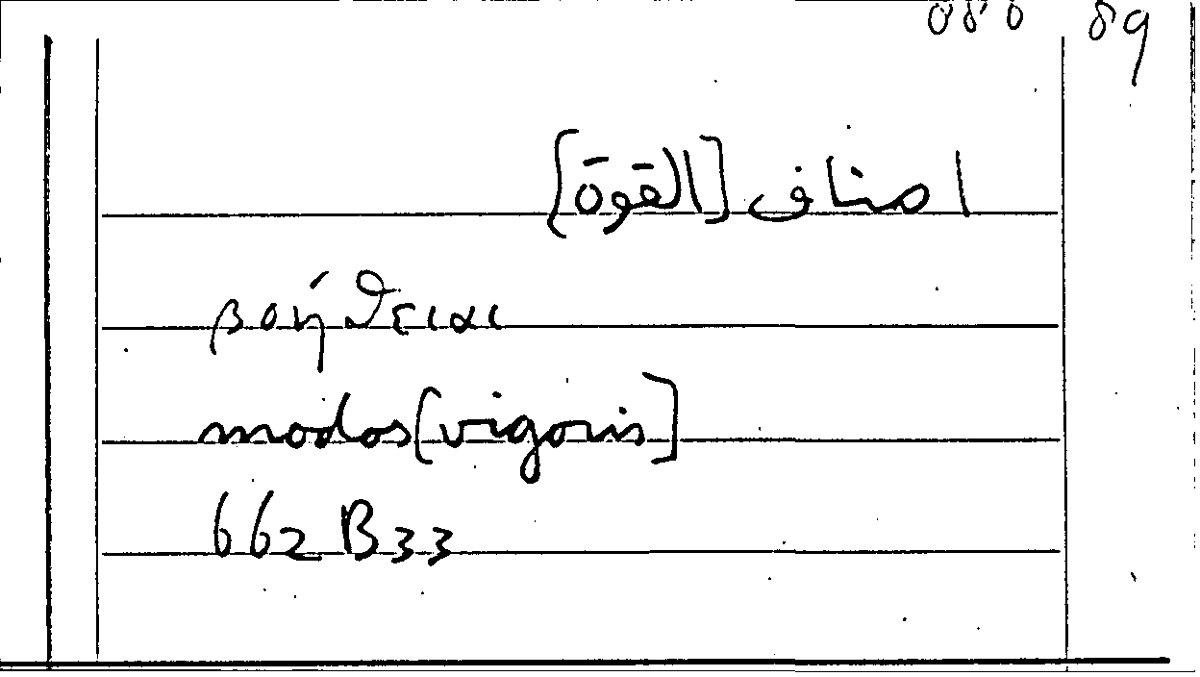 اصناف [القوة]
βοήθειαι
modos [vigoris]
662 B33